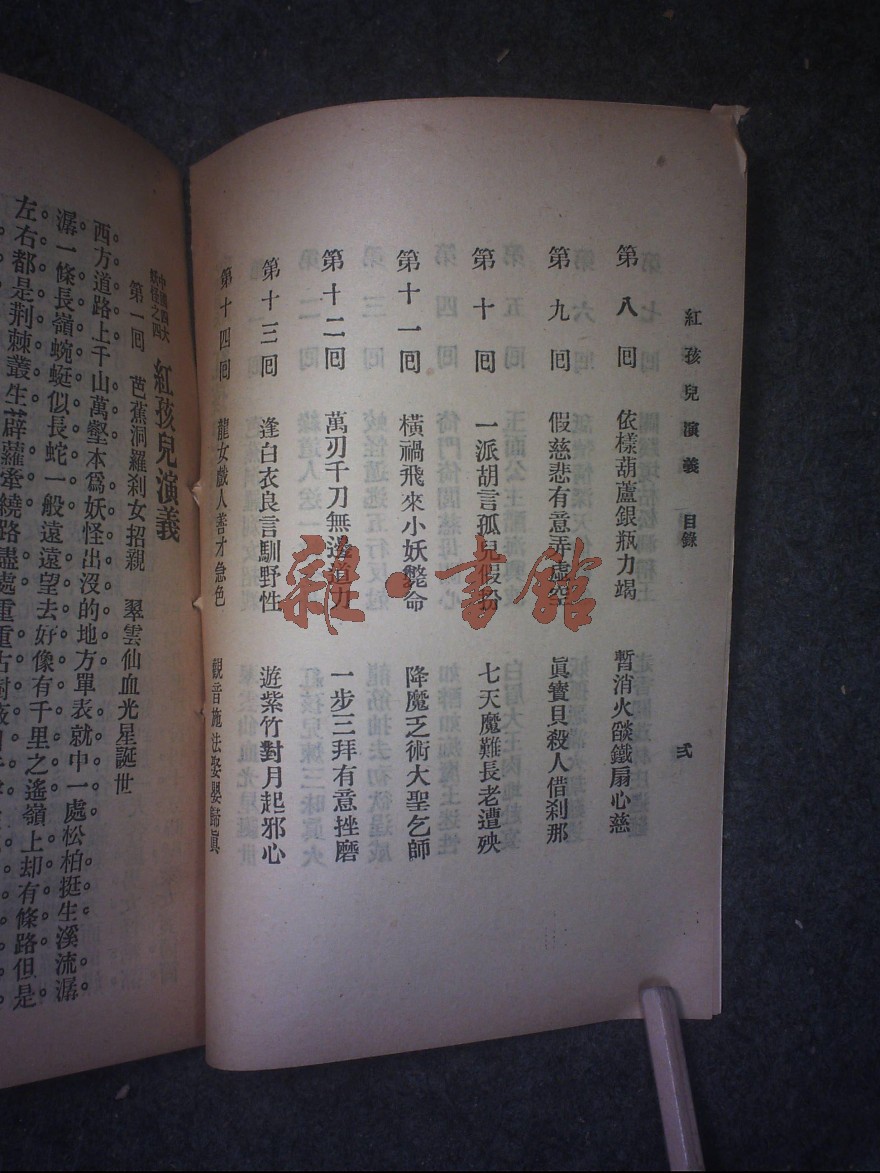 紅孩兒演義 目錄 弍
第八囘 依樣葫蘆銀瓶力竭 暫消火燄鐵扇心慈
第九囘 假慈悲有意弄虛空 眞寶貝殺人借刹那
第十囘 一派胡言孤兒假扮 七天魔難長老遭殃
第十一囘 橫禍飛來小妖斃命 降魔乏術大聖乞師
第十二囘 萬刃千刀無邊道力 一步三拜有意挫磨
第十三囘 逢白衣良言馴野性 遊紫竹對月起邪心
第十四囘 龍女戲人善才急色 觀音施法娶嬰歸眞
雜·書館
中國四大
妖怪之四
紅孩兒演義
第一囘 芭蕉洞羅刹女招親 翠雲仙血光星誕世
西方道路上千山萬壑本爲妖怪出沒的地方。單表就中一處松柏挺生。溪流潺
潺。一條長嶺蜿蜒似長蛇一般。遠遠望去。好像有千里之遙。嶺上却有條路。但是
左右都是荆棘叢生。薜蘿牽繞。路盡處重重古樹